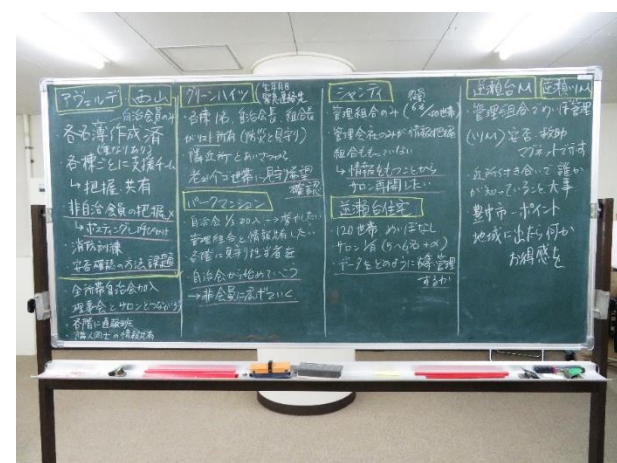 アヴェルデ 西山
自治会員のみ
各名簿作成済
(重なりあり)
・各棟ごとに支援チーム
→把握・共有
・非自治会員の把握×
→ポスティングしよびかけ
・消防訓練
安否確認の方法課題
・全所帯自治会加入
理事会とサロンとつながり
・各階に連絡
・隣人同士の情報共有
グリーンハイツ
生年月日
緊急連絡先
・各棟 自治会長、組合長
が1冊所有(防災と見守り)
隣近所とあいさつする
確認
パークマンション
・自治会 1/3 加入→増やしたい
管理組合と情報共有したい
各階に見守り担当者を
・自治会から始めていこう
→非会員に広げていく
シャンティ
管理組合のみ
管理会社のみが情報把握
組合ももっていない
→情報をもつことから
サロン再開したい
逆瀬台住宅
120世帯 めいぼなし
サロン 台(5〜6名+α)
データをどのように 管理
するか
逆瀬台M 逆瀬川M
・管理組合でめいぼ管理
(川M) 安否・救助
マグネット
・近所付き合いで誰か
が知っていること大事
豊中市-ポイント
地域に出たら何か
お得感を